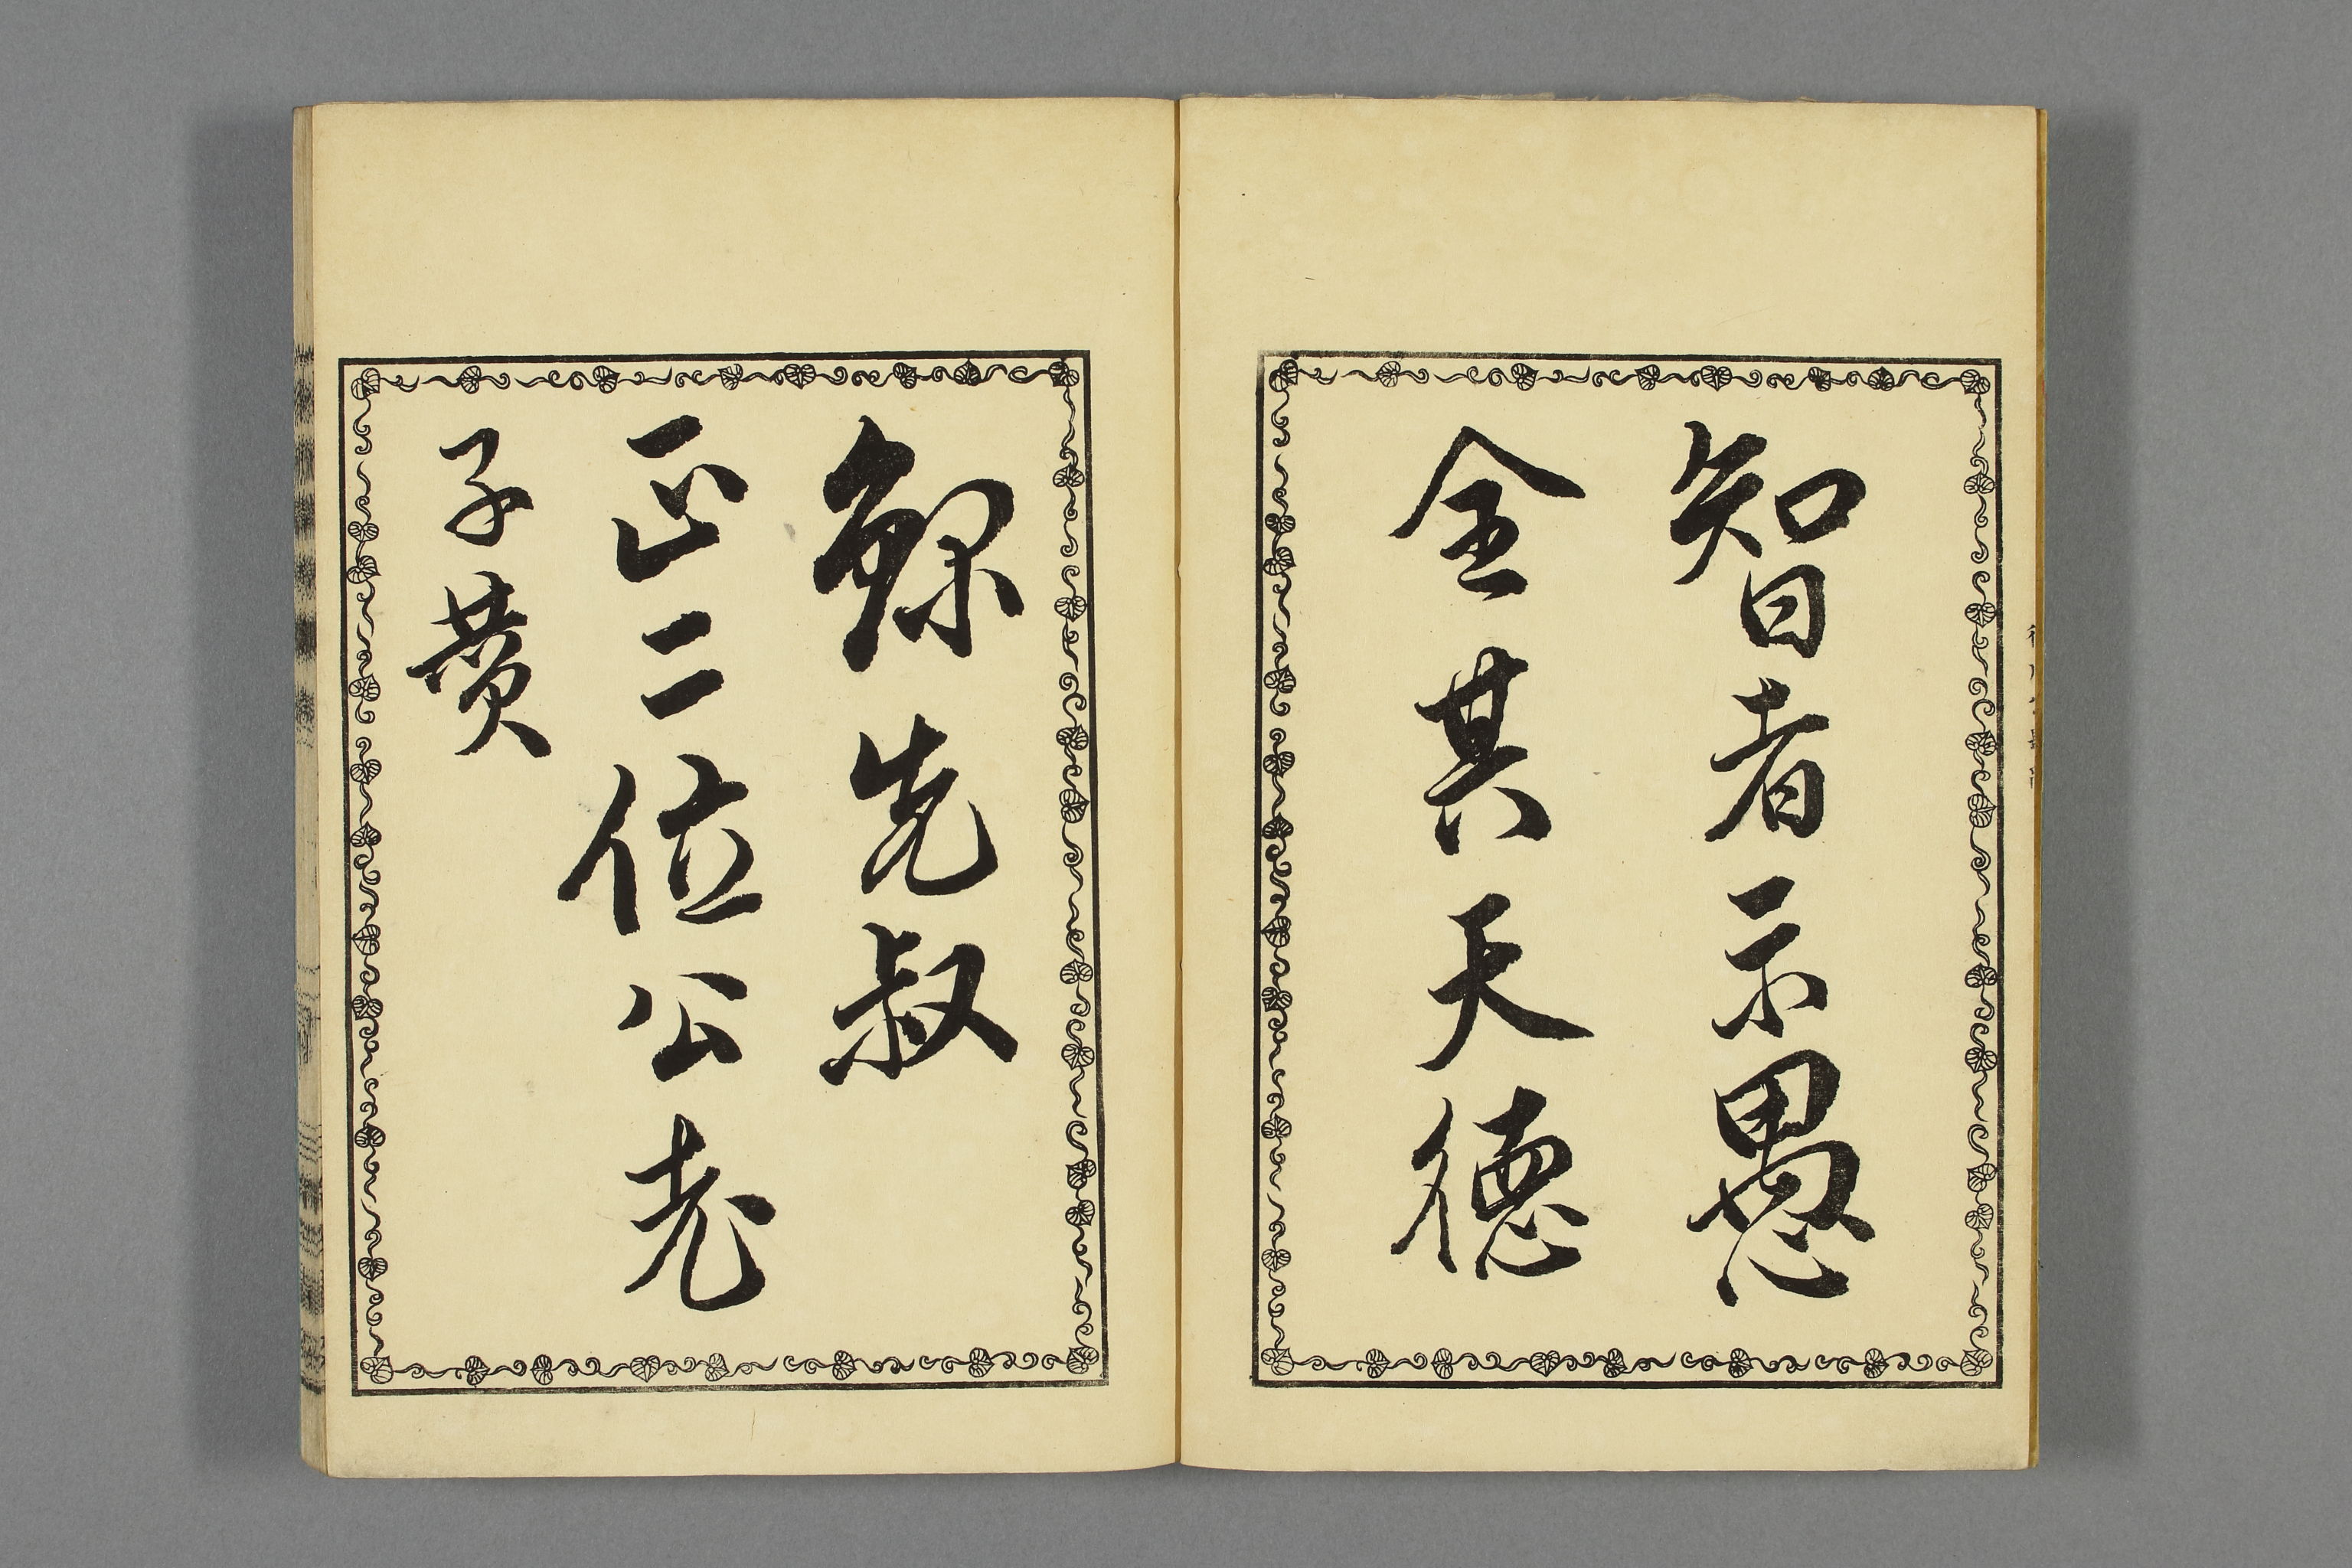 智者示愚
全其天德
先叔
正二位公老
子